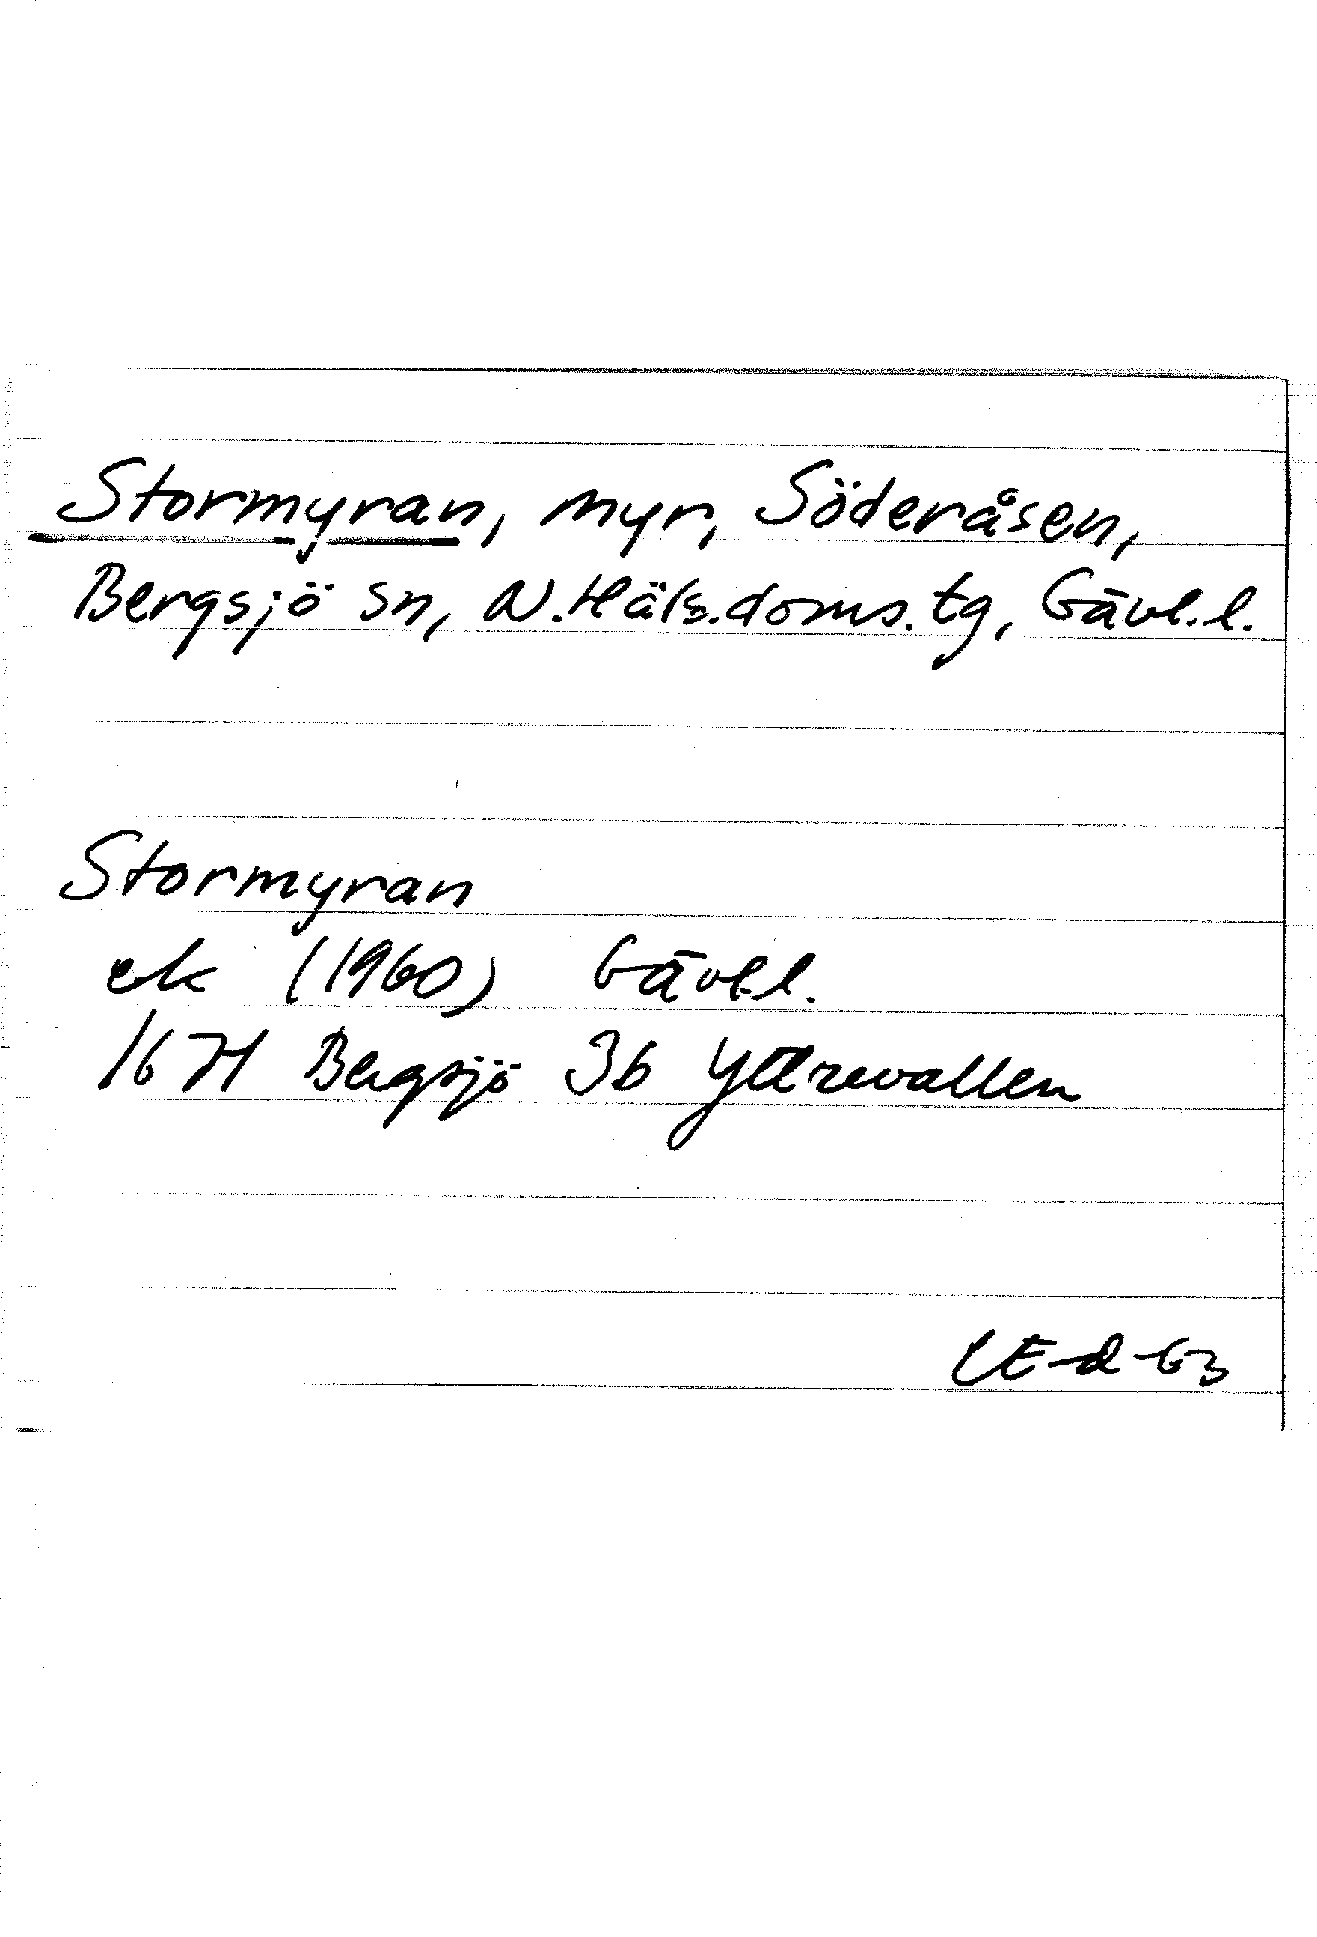 Stormyran, myr, Söderåsen,
Bergsjö sn, N.Häls.doms.tg, Gävl.l.
Stormyran
ek (1960) Gävl.l.
16 H Bergsjö 3b Yttrevallen
LE-d-63